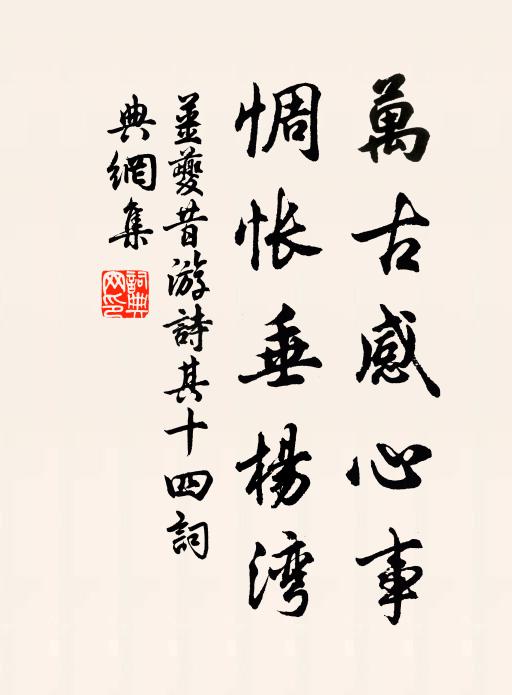 萬古感心事
惆怅垂楊湾
姜夔昔游詩其十四詞
典網集
詞典網印